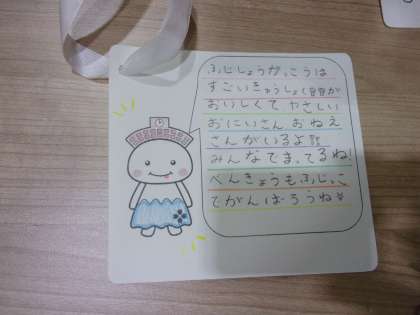 ふじしょうがっこうは
すごいきゅうしょくが
おいしくて やさしい
おにいさん おねえ
さんがいるよ!!
みんなでまってるね!
べんきょうもふじっこ
でがんばろうね